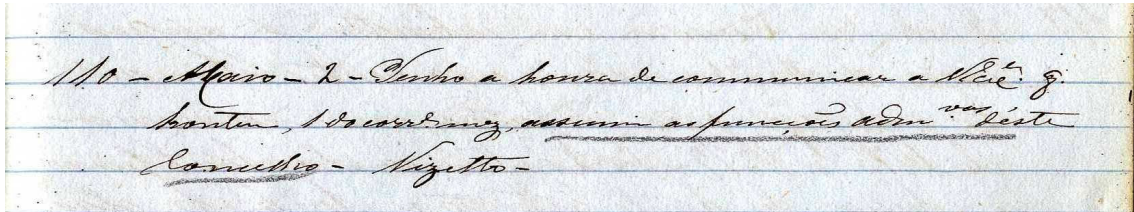 110 - Maio - 2 - Tenho a honra de communicar a V. Exc.ª q.
hontem, 1 do corr.e mez, assumi as funcções adm.vas d'éste
Concelho - Nizetto -